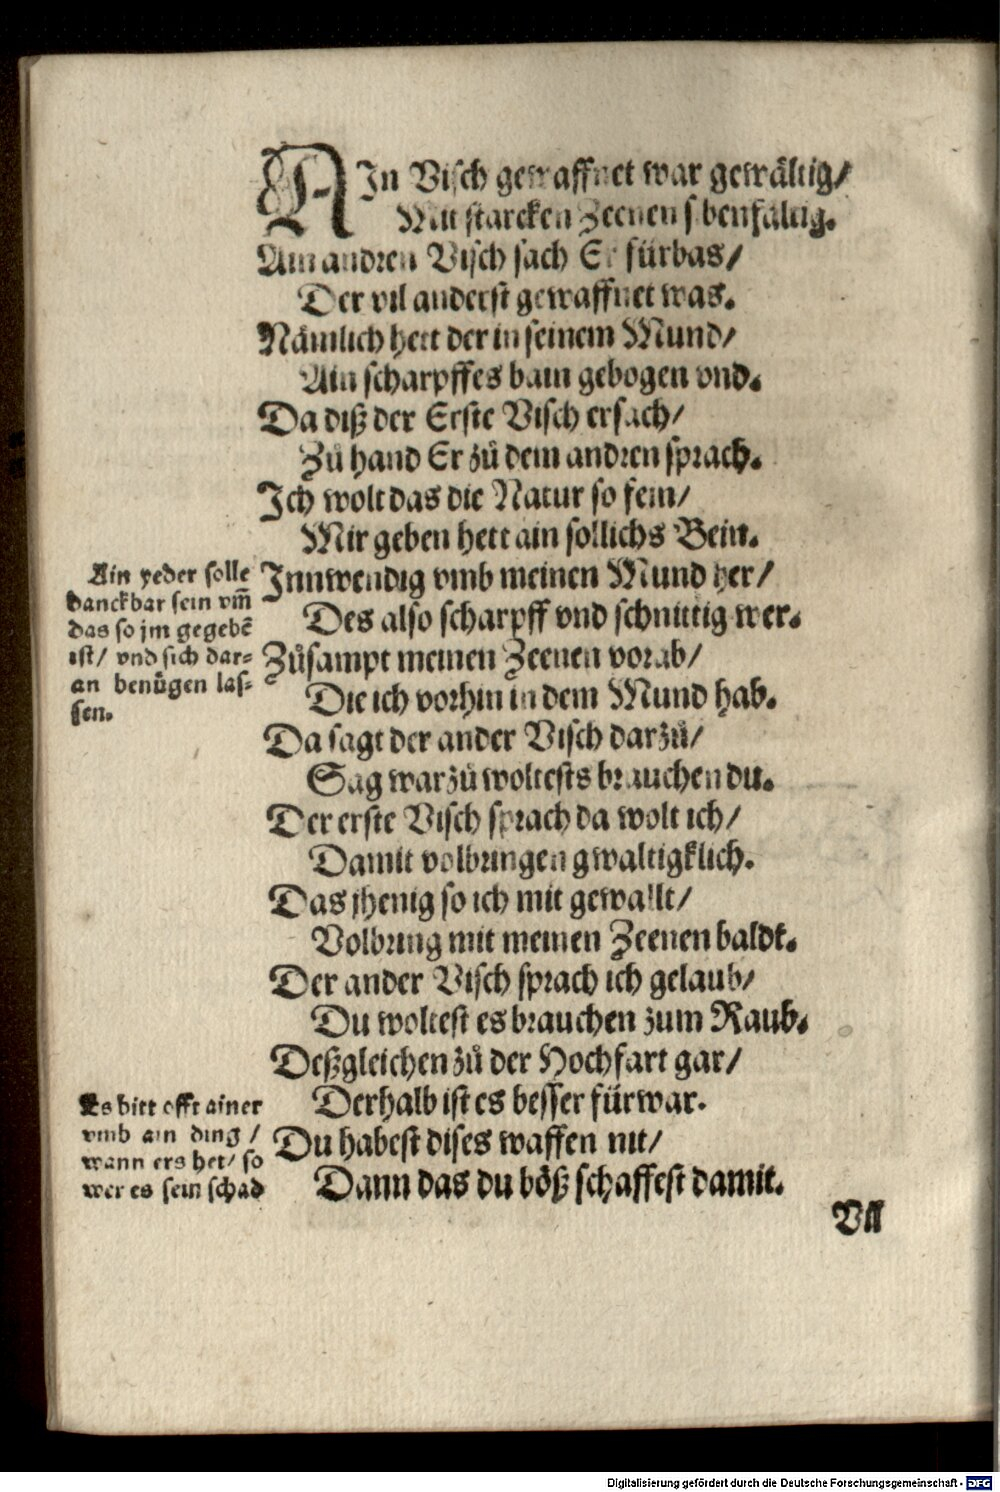 AIn Visch gewaffnet war gewältig/
Mit starcken Zeenen sibenfältig.
Ain andren Visch sach Er fürbas/
Der vil anderst gewaffnet was.
Nämlich hett der in seinem Mund/
Ain scharpffes bain gebogen vnd.
Da diß der Erste Visch ersach/
Zů hand Er zů dem andren sprach.
Ich wolt das die Natur so fein/
Mir geben hett ain sollichs Bein.
Innwendig vmb meinen Mund her/
Des also scharpff vnd schnittig wer.
Zůsampt meinen Zeenen vorab/
Die ich vorhin in dem Mund hab.
Da sagt der ander Visch darzů/
Sag warzů woltests brauchen du.
Der erste Visch sprach da wolt ich/
Damit volbringen gwaltigklich.
Das jhenig so ich mit gewallt/
Volbring mit meinen Zeenen baldt.
Der ander Visch sprach ich gelaub/
Du woltest es brauchen zum Raub.
Deßgleichen zů der Hochfart gar/
Derhalb ist es besser fürwar.
Du habest dises waffen nit/
Dann das du böß schaffest damit.
Vil
Ain yeder solle
danckbar sein vm̃
das so jm gegebẽ
ist/ vnd sich dar-
an benůgen las-
sen.
Es bitt offt ainer
vmb ain ding /
wann ers het/ so
wer es sein schad
Digitalisierung gefördert durch die Deutsche Forschungsgemeinschaft - DFG